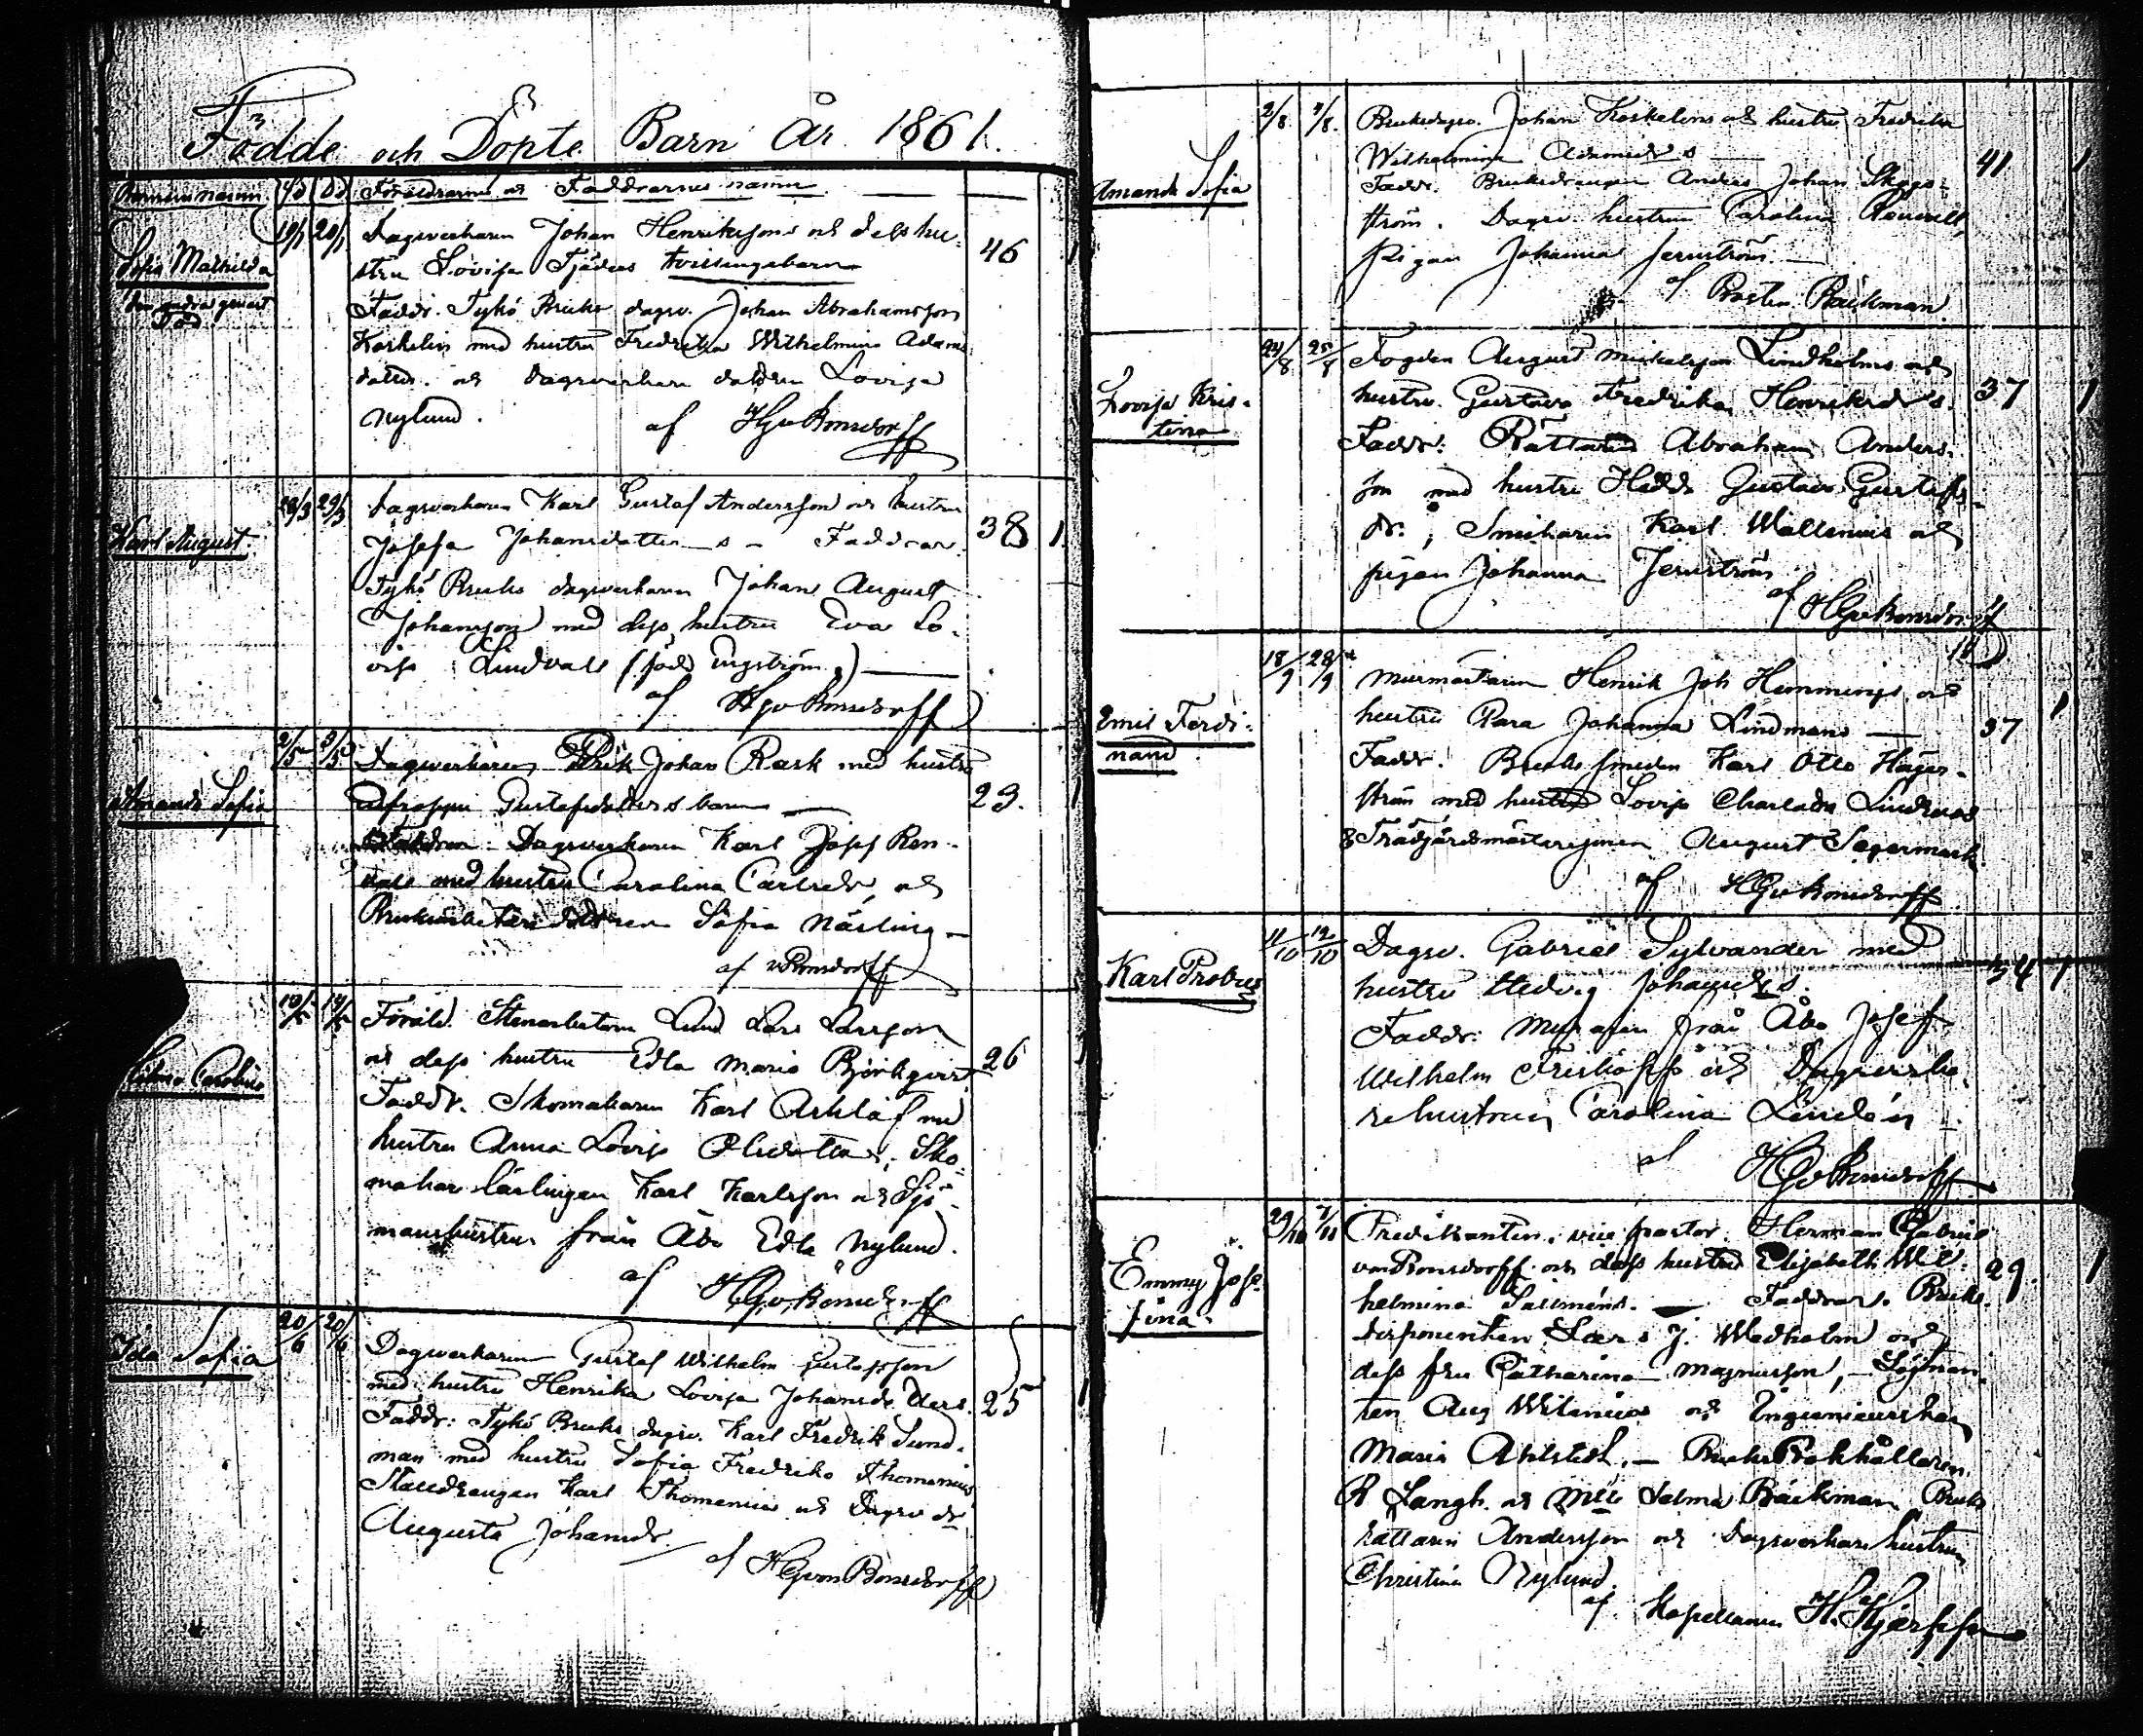 Födde och Döpte Barn År 1861.
Föräldrarnes och Faddrarnes namn
Sofia Mathilda
19/1 20/1 Dagsverkaren Johan Henrikssons och dess hu-
stru Lovisa Fjäders tvillingebarn 46 1
den andra genast
Död
Faddr. Tykö Bruks dagsv. Johan Abrahamsson
Koskelin med hustru Fredrika Wilhelmina Adams
dotter och dagsverkare dottren Lovisa
Nylund.
af HGvBonsdorff
Karl August
29/3 29/3 Dagsverkaren Karl Gustaf Andersson och hustru
Josefa Johansdotters - Faddrar 38 1
Tykö Bruks dagsverkaren Johan August
Johansson med dess hustru Eva Lo-
visa Lindvall (född Engström.)
af HGvBonsdorff
Amanda Sofia
2/5 3/5 Dagsverkaren Erik Johan Rask med hustru
Gustafsdotters barn 23. 1
Faddrar Dagsverkaren Karl Josef Ren-
vall med hustru Carolina Carlsdr, och
Bruksarbetaredottren Sofia Närling
af vBonsdorff
Carolina
Föräld. Stenarbetaren Lars Larsson
och dess hustru Edla Maria Björkqvist 26 1
Faddr. Skomakaren Karl Asklöf med
hustru Anna Lovisa Olsdotter, Sko-
makare lärlingen Karl Karlsson och Sjö-
manshustrun från Åbo Edla Nylund.
af HGvBonsdorff
Ida Sofia
20/6 20/6 Dagsverkaren Gustaf Wilhelm Gustafsson
med hustru Henrika Lovisa Johansdotters. 25 1
Faddr: Tykö Bruks dagsv. Karl Fredrik Sund-
man med hustru Sofia Fredrika Thomenius
Stalldrängen Karl Thomenius och Dagsv dr
Augusta Johansdr.
af HGvonBonsdorff
Amanda Sofia
2/8. 7/8. Bruksdagsv. Johan Koskelins och hustru Fredrika
Wilhelmina Adamsdrs 41 1
Faddr. Bruksdrängen Anders Johan Skogs-
ström. Dagsv. hustrun Carolina Renvall,
pigan Johanna Jernström.
af Prosten Bäckman
Lovisa Kris-
tina
24/8 25/8 Fogden August Mickelsson Lindholms och
hustru Gustava Fredrika Henriksdrs. 37 1
Faddr: Rättaren Abraham Anders-
son med hustru Hedda Gustava Gustafs-
dr., Smeharen Karl Wallenius och
pigan Johanna Jernström
af HGvBonsdorff
Emil Ferdi-
nand
18/9 28/9 Murmästaren Henrik Joh Hemmings och
hustru Clara Johanna Lindmans 37 1
Faddr. Bruks smeden Karl Otto Häger-
ström med hustru Lovisa Charlotta Lindroos
& Trädgårdsmästaregesellen August Segermark.
af HGvBonsdorff
Karl Probus
11/10 12/10 Dagsv. Gabriel Sylvander med
hustru Hedvig Johansdrs. 34 1
Faddr: Muraren från Åbo Josef
Wilhelm och Dagsverka-
rehustrun Carolina Lindén
af HGvBonsdorff
Emmy Jose-
fina.
29/10 7/11 Predikanten, vice pastor Herman Gabriel
von Bonsdorff och dess hustru Elisabeth Wil-
helmina Sallméns. Faddrar. Bruks- 29. 1
disponenten Lars J. Wedholm och
dess fru Catharina Magnusson, - Löjtnan-
ten Aug Wilenius och Ingenieurskan
Maria Ahlstedt. - Bruks Bokhållaren
R Langh. och Mlle Selma Bäckman Bruks
rättaren Andersson och Dagsverkare hustrun
Christina Nylund.
af Kapellanen H. Hjerppe